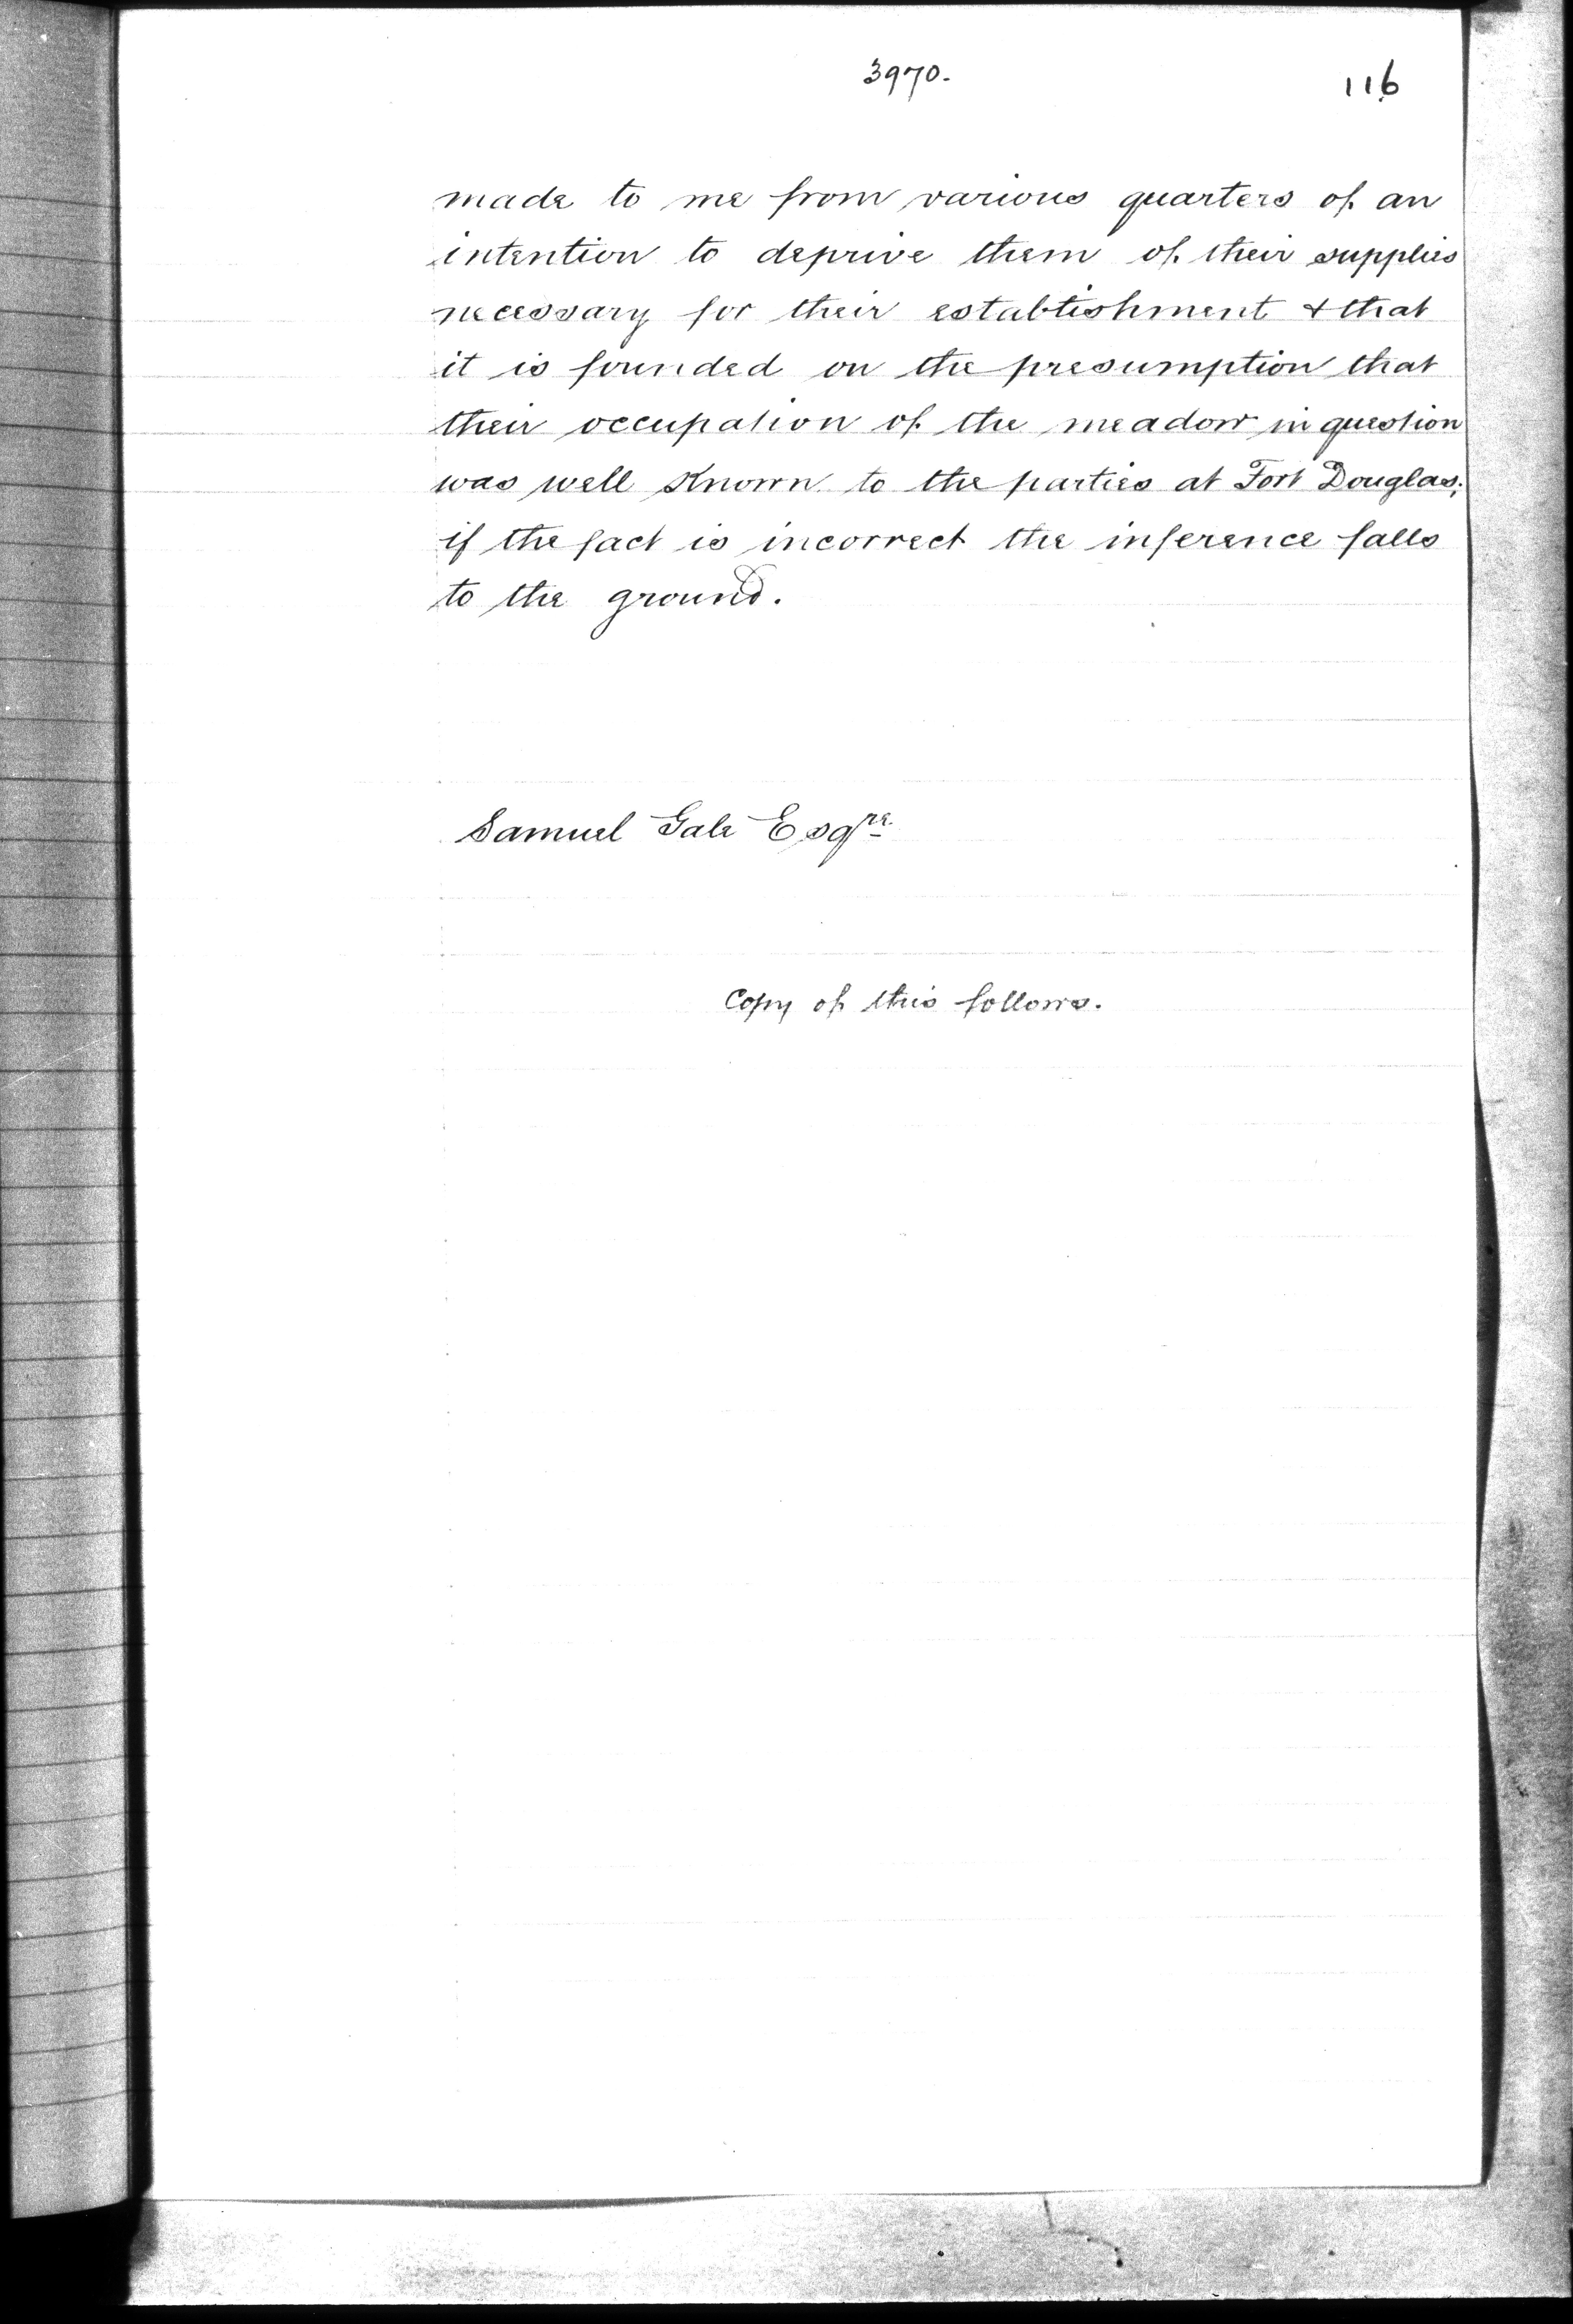 3970.
116
made to me from various quarters of an
intention to deprive them of their supplies
necessary for their establishment & that
it is founded on the presumption that
their occupation of the meadow in question
was well known to the parties at Fort Douglas;
if the fact is incorrect the inference falls
to the ground.
Samuel Gale Esqre.
Copy of this follows.